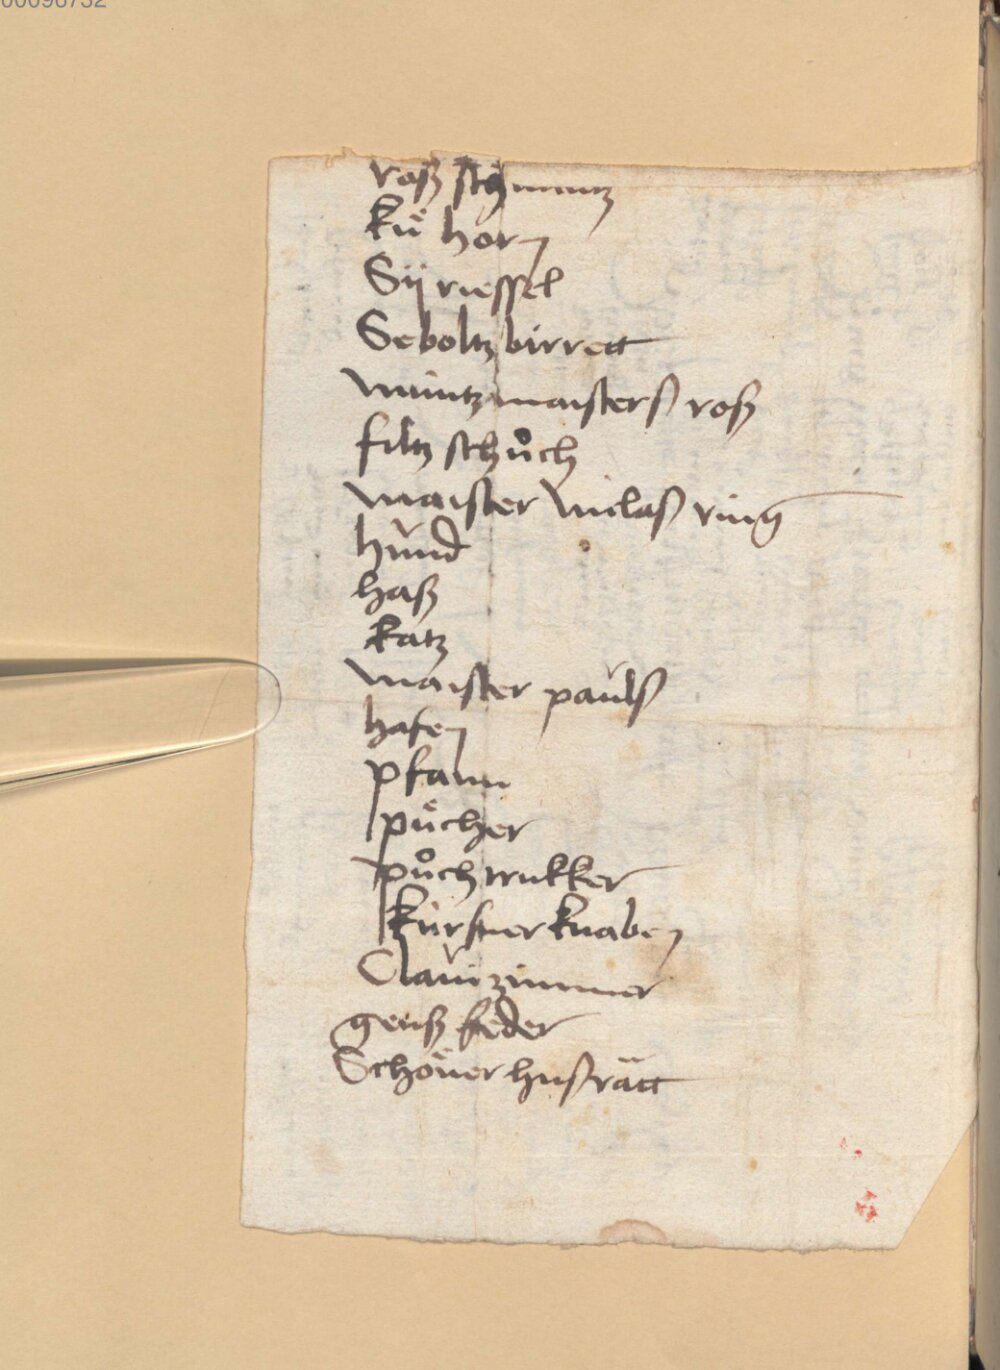 00096732
roß schmutz
kuͤ horn
Sy riessel
Seboltz birrett
muntzmaisters roß
filtz schuͦch
maister Niclas ring
hund
haß
katz
maister pauls
hafen
pfann
puͤcher
puͦch trukker
kürsner knaben
Clain zimmer
genß feder
Schöner husrätt